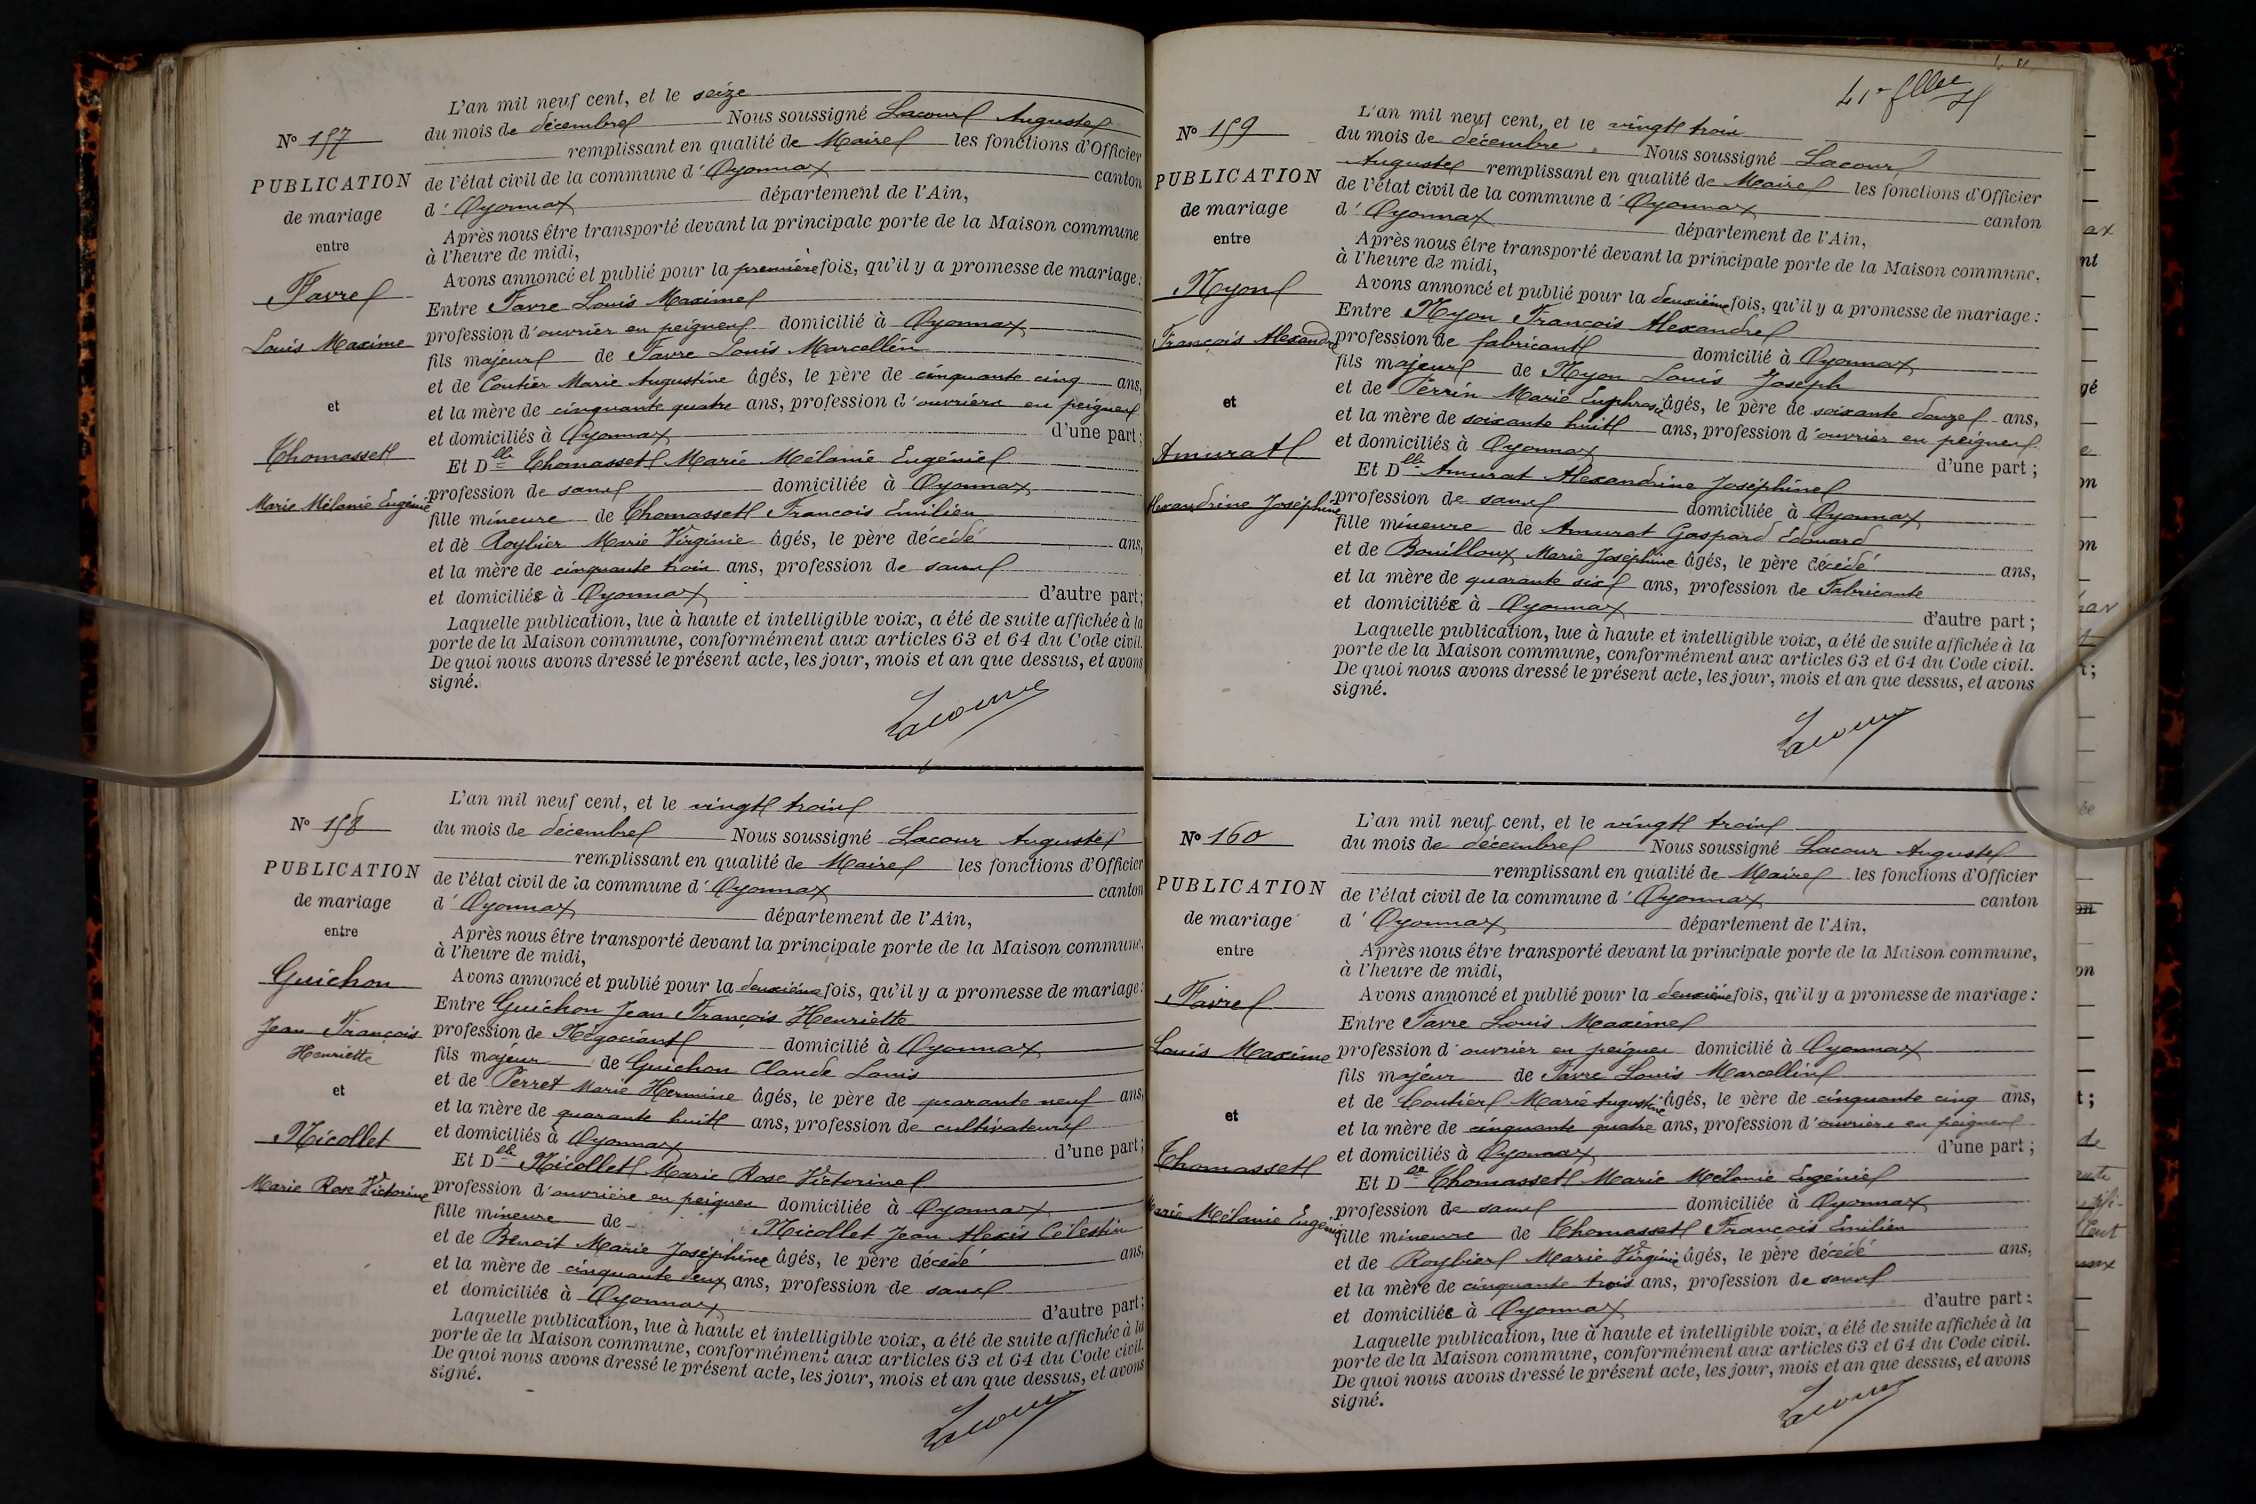 N° 157
PUBLICATION
de mariage
entre
Favre
Louis Maxime
et
Thomasset
Marie Mélanie Eugénie
L'an mil neuf cent, et le seize
du mois de décembre Nous soussigné Lacour Auguste
remplissant en qualité de Maire les fonctions d'Officier
de l'état civil de la commune d'Oyonnax canton
d'Oyonnax département de l'Ain,
Après nous être transporté devant la principale porte de la Maison commune
à l'heure de midi,
Avons annoncé et publié pour la première fois, qu'il y a promesse de mariage:
Entre Favre Louis Maxime
profession d'ouvrier en peignes domicilié à Oyonnax
fils majeur de Favre Louis Marcellin
et de Coutier Marie Augustine âgés, le père de cinquante cinq ans,
et la mère de cinquante quatre ans, profession d'ouvriers en peignes
et domiciliés à Oyonnax d'une part;
Et Dlle Thomasset Marie Mélanie Eugénie
profession de sans domiciliée à Oyonnax
fille mineure de Thomasset François Emilien
et de Roybier Marie Virginie âgés, le père décédé ans,
et la mère de cinquante trois ans, profession de sans
et domiciliée à Oyonnax d'autre part;
Laquelle publication, lue à haute et intelligible voix, a été de suite affichée à la
porte de la Maison commune, conformément aux articles 63 et 64 du Code civil.
De quoi nous avons dressé le présent acte, les jour, mois et an que dessus, et avons
signé.
Lacour
N° 158
PUBLICATION
de mariage
entre
Guichon
Jean François
Henriette
et
Nicollet
Marie Rose Victorine
L'an mil neuf cent, et le vingt trois
du mois de décembre Nous soussigné Lacour Auguste
remplissant en qualité de Maire les fonctions d'Officier
de l'état civil de la commune d'Oyonnax canton
d'Oyonnax département de l'Ain,
Après nous être transporté devant la principale porte de la Maison commune,
à l'heure de midi,
Avons annoncé et publié pour la deuxième fois, qu'il y a promesse de mariage:
Entre Guichon Jean François Henriette
profession de Négociant domicilié à Oyonnax
fils majeur de Guichon Claude Louis
et de Perret Marie Hermine âgés, le père de quarante neuf ans,
et la mère de quarante huit ans, profession de cultivateurs
et domiciliés à Oyonnax d'une part;
Et Dlle Nicollet Marie Rose Victorine
profession d'ouvrière en peignes domiciliée à Oyonnax
fille mineure de Nicollet Jean Alexis Célestin
et de Benoit Marie Joséphine âgés, le père décédé ans,
et la mère de cinquante deux ans, profession de sans
et domiciliée à Oyonnax d'autre part;
Laquelle publication, lue à haute et intelligible voix, a été de suite affichée à la
porte de la Maison commune, conformément aux articles 63 et 64 du Code civil.
De quoi nous avons dressé le présent acte, les jour, mois et an que dessus, et avons
signé.
Lacour
N° 159
PUBLICATION
de mariage
entre
Nyon
François Alexandre
et
Amurat
Alexandrine Joséphine
L'an mil neuf cent, et le vingt trois
du mois de décembre Nous soussigné Lacour
Auguste remplissant en qualité de Maire les fonctions d'Officier
de l'état civil de la commune d'Oyonnax canton
d'Oyonnax département de l'Ain,
Après nous être transporté devant la principale porte de la Maison commune,
à l'heure de midi,
Avons annoncé et publié pour la deuxième fois, qu'il y a promesse de mariage:
Entre Nyon François Alexandre
profession de fabricant domicilié à Oyonnax
fils majeur de Nyon Louis Joseph
et de Perrin Marie Euphrasie âgés, le père de soixante douze ans,
et la mère de soixante huit ans, profession d'ouvrier en peignes
et domiciliés à Oyonnax d'une part;
Et Dlle Amurat Alexandrine Joséphine
profession de sans domiciliée à Oyonnax
fille mineure de Amurat Gaspard Edouard
et de Bouilloux Marie Joséphine âgés, le père décédé ans,
et la mère de quarante six ans, profession de Fabricante
et domiciliée à Oyonnax d'autre part;
Laquelle publication, lue à haute et intelligible voix, a été de suite affichée à la
porte de la Maison commune, conformément aux articles 63 et 64 du Code civil.
De quoi nous avons dressé le présent acte, les jour, mois et an que dessus, et avons
signé.
Lacour
N° 160
PUBLICATION
de mariage
entre
Favre
Louis Maxime
et
Thomasset
Marie Mélanie Eugénie
L'an mil neuf cent, et le vingt trois
du mois de décembre Nous soussigné Lacour Auguste
remplissant en qualité de Maire les fonctions d'Officier
de l'état civil de la commune d'Oyonnax canton
d'Oyonnax département de l'Ain,
Après nous être transporté devant la principale porte de la Maison commune,
à l'heure de midi,
Avons annoncé et publié pour la deuxième fois, qu'il y a promesse de mariage:
Entre Favre Louis Maxime
profession d'ouvrier en peignes domicilié à Oyonnax
fils majeur de Favre Louis Marcellin
et de Coutier Marie Augustine âgés, le père de cinquante cinq ans,
et la mère de cinquante quatre ans, profession d'ouvriers en peignes
et domiciliés à Oyonnax d'une part;
Et Dlle Thomasset Marie Mélanie Eugénie
profession de sans domiciliée à Oyonnax
fille mineure de Thomasset François Emilien
et de Roybier Marie Virginie âgés, le père décédé ans,
et la mère de cinquante trois ans, profession de sans
et domiciliée à Oyonnax d'autre part:
Laquelle publication, lue à haute et intelligible voix, a été de suite affichée à la
porte de la Maison commune, conformément aux articles 63 et 64 du Code civil.
De quoi nous avons dressé le présent acte, les jour, mois et an que dessus, et avons
signé.
Lacour